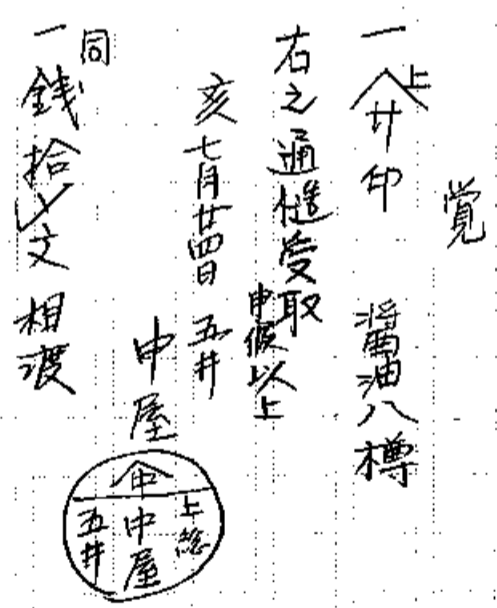 覚
一 上 廾印 醤油八樽
右之通慥受取
申候以上
亥七月廿四日 五井
中屋
上総
中
中屋
五井
同
一銭拾〆文相渡